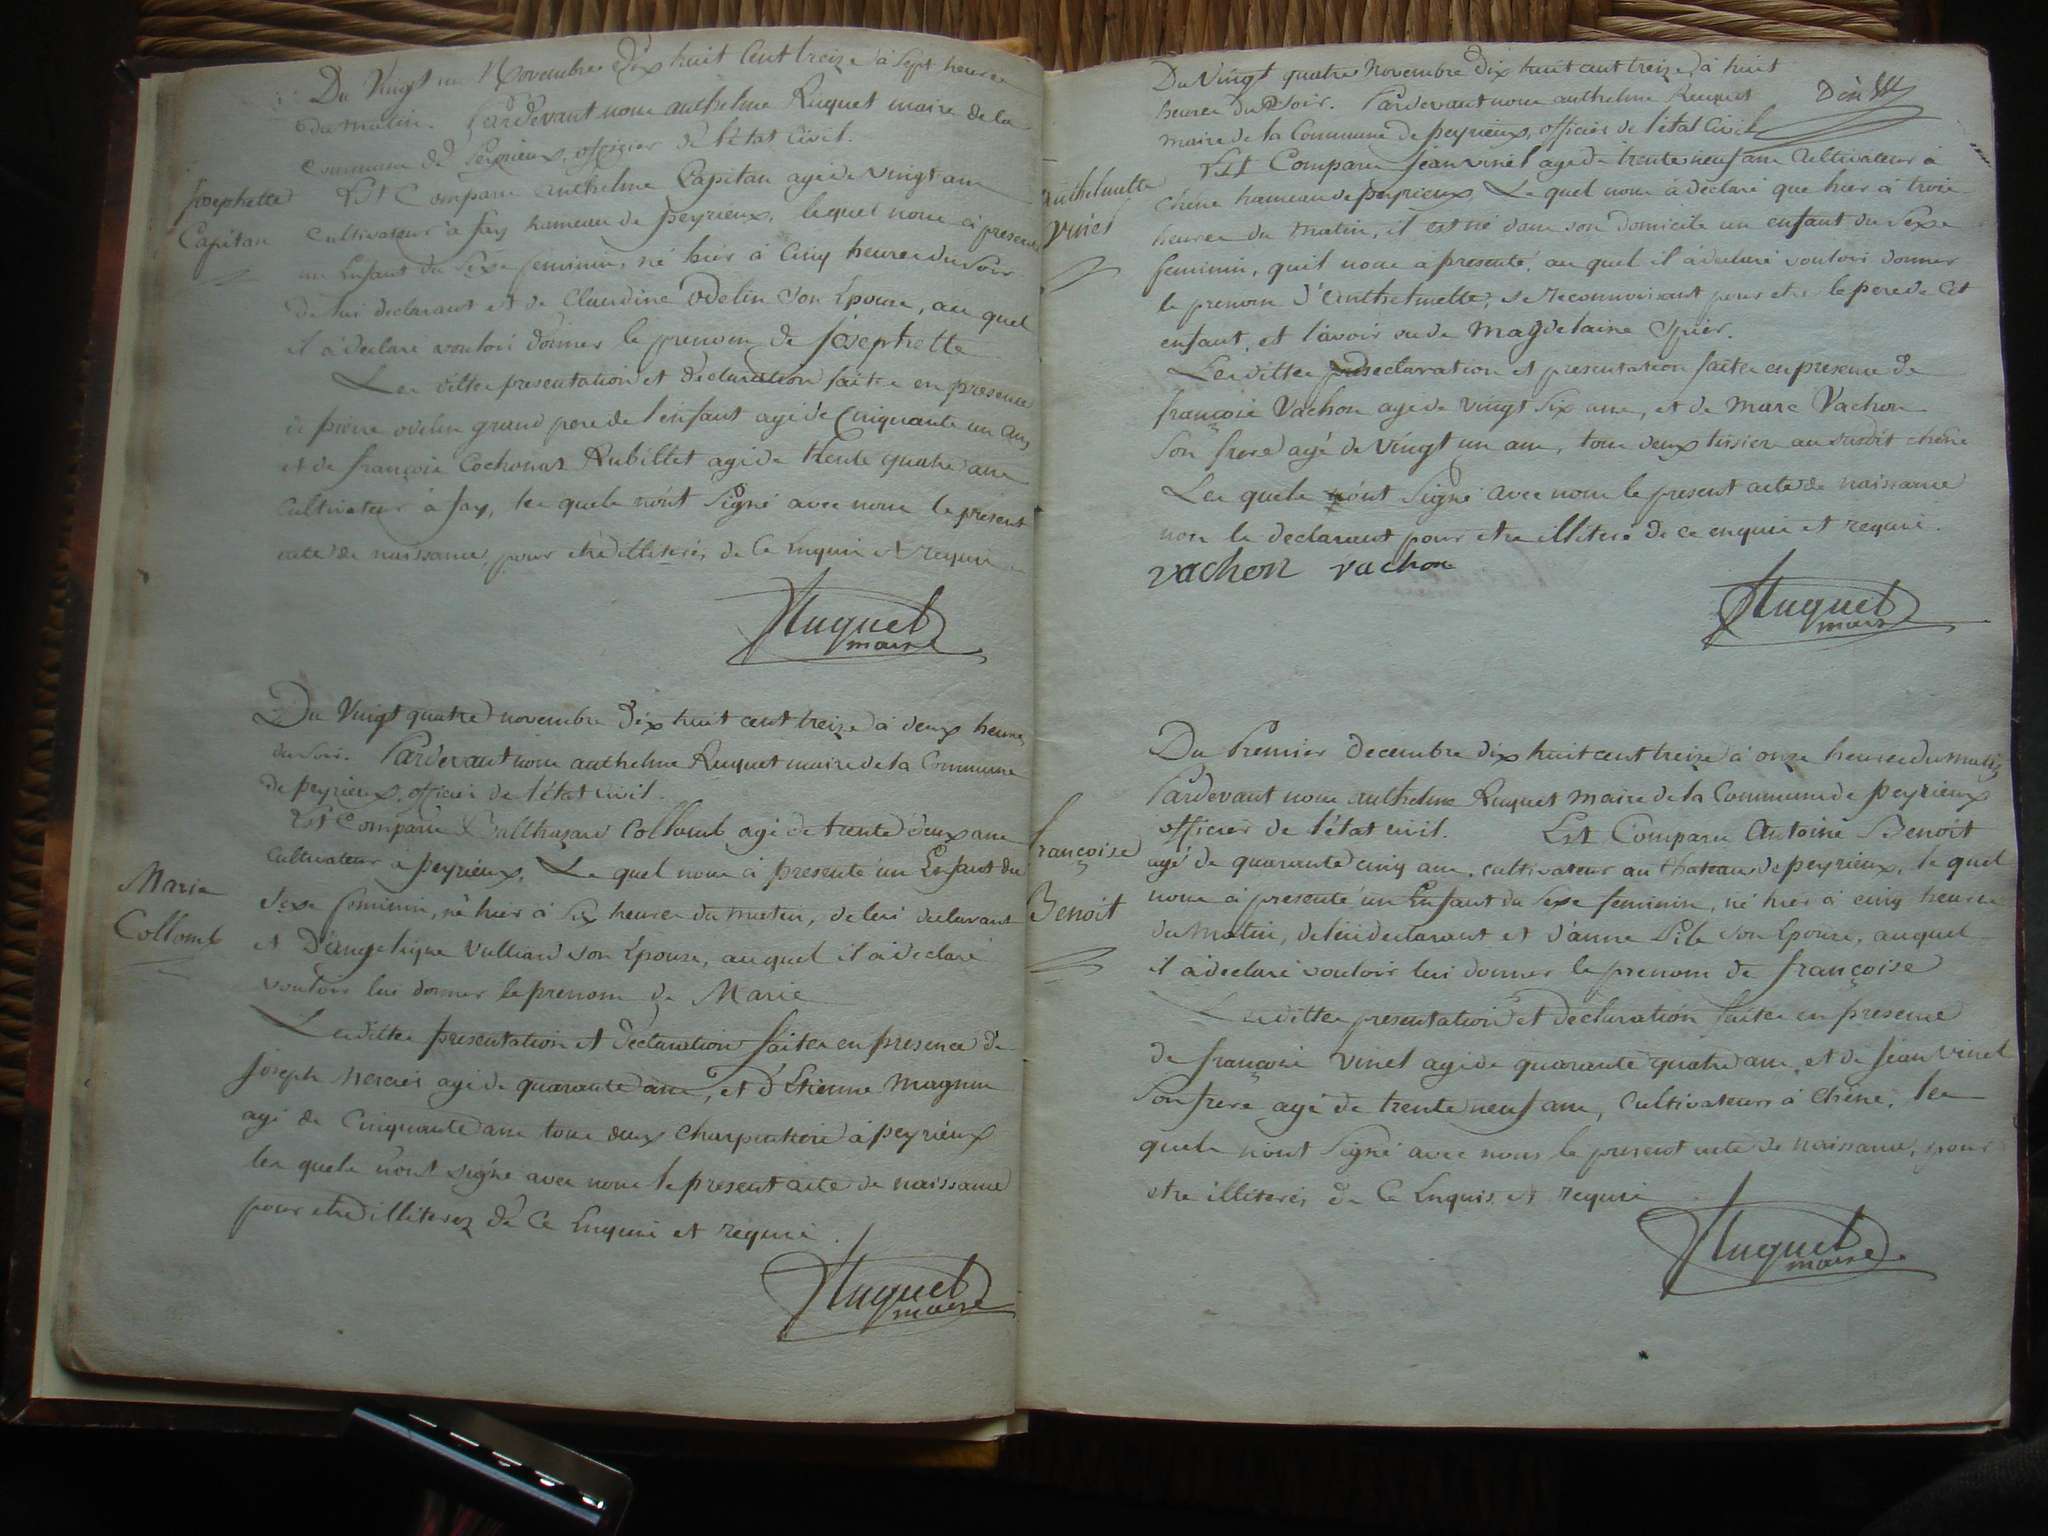 Du Vingt un Novembre Dix huit Cent treize à Sept heures
du matin. Pardevant nous anthelme Ruquet maire de la
Commune de Peyrieux, officier de l'état Civil.
Josephette
Capitan
Est Comparu anthelme Capitan agé de vingt ans
Cultivateur à fay hameau de peyrieux, lequel nous à presenté
un Enfant du Sexe feminin, né hier à Cinq heures du Soir
de lui declarant et de Claudine Odelin Son Epouse, au quel
il à declaré vouloir donner le prenom de Josephette
Les dittes presentation et declaration faites en presence
de pierre odelin grand pere de l'enfant agé de Cinquante un ans
et de françois Cochonat Rubillet agé de trente quatre ans
Cultivateur à fay, les quels n'ont Signé avec nous le présent
acte de naissance, pour etre illiterés, de Ce Enquis et requis
Ruquet
maire
Du Vingt quatre novembre Dix huit cent treize à deux heures
du Soir. Pardevant nous anthelme Ruquet maire de la Commune
de peyrieux, officier de l'état civil.
Marie
Collomb
Est Comparu Balthasard Collomb agé de trente deux ans
Cultivateur à peyrieux, Le quel nous à presenté un Enfant du
Sexe feminin, né hier à Six heures du matin, de lui declarant
et D'angelique Vulliard son Epouse, au quel il à declaré
vouloir lui donner le prenom de Marie
Les dittes presentation et declaration faites en presence de
Joseph Mercier agé de quarante ans, et d'Etienne Magnin
agé de Cinquante ans tous deux Charpentiers à peyrieux
les quels n'ont signé avec nous le present acte de naissance
pour etre illiterez de Ce Enquis et requis.
Ruquet
maire
Du Vingt quatre Novembre Dix huit cent treize à huit
heures du Soir. Pardevant nous anthelme Ruquet
maire de la Commune de peyrieux, officier de l'état Civil
anthelmette
Vinet
Est Comparu Jean vinet agé de trente neuf ans Cultivateur à
Chêne hameau de peyrieux, Le quel nous à déclaré que hier à trois
heures du Matin, il est né dans son domicile un enfant du Sexe
feminin, qu'il nous a presenté, au quel il à declaré vouloir donner
le prenom d'anthelmette, se reconnoissant pour etre le pere de Cet
enfant, et l'avoir eu de Magdelaine
Les dittes declaration et presentation faites en presence de
françois Vachon agé de vingt Six ans, et de Marc Vachon
Son frere agé de Vingt un ans, tous deux tissiers au susdit chêne
Les quels ont Signé avec nous le present acte de naissance
non le declarant pour etre illiteré de ce enquis et requis.
vachon vachon
Ruquet
maire
Du Premier Decembre dix huit cent treize à onze heures du Matin
Pardevant nous anthelme Ruquet Maire de la Commune de peyrieux
françoise
Benoit
officier de l'état civil. Est Comparu Antoine Benoit
agé de quarante cinq ans, cultivateur au Chateau de peyrieux, le quel
nous à presenté un Enfant du Sexe feminin, né hier à cinq heures
du Matin, de lui declarant et d'anne Pile Son Epouse, auquel
il à declaré vouloir lui donner le prenom de françoise
Les dittes presentation et declaration faites en presence
de françois vinet agé de quarante quatre ans, et de Jean vinet
Son frere agé de trente neuf ans, Cultivateurs à Chêne, les
quels n'ont Signé avec nous le present acte de naissance, pour
etre illiterés, de Ce Enquis et requis
Ruquet
maire